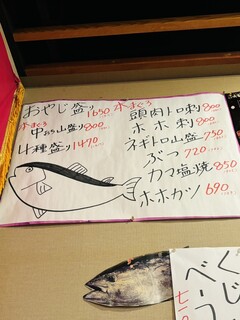 おやじ盛り1650
本まぐろ
中おち山盛り800
4種盛り1470
本まぐろ
頭肉トロ刺800
ホホ刺800
ネギトロ山盛750
ぶつ720
カマ塩焼850
ホホカツ690
くじ
べー